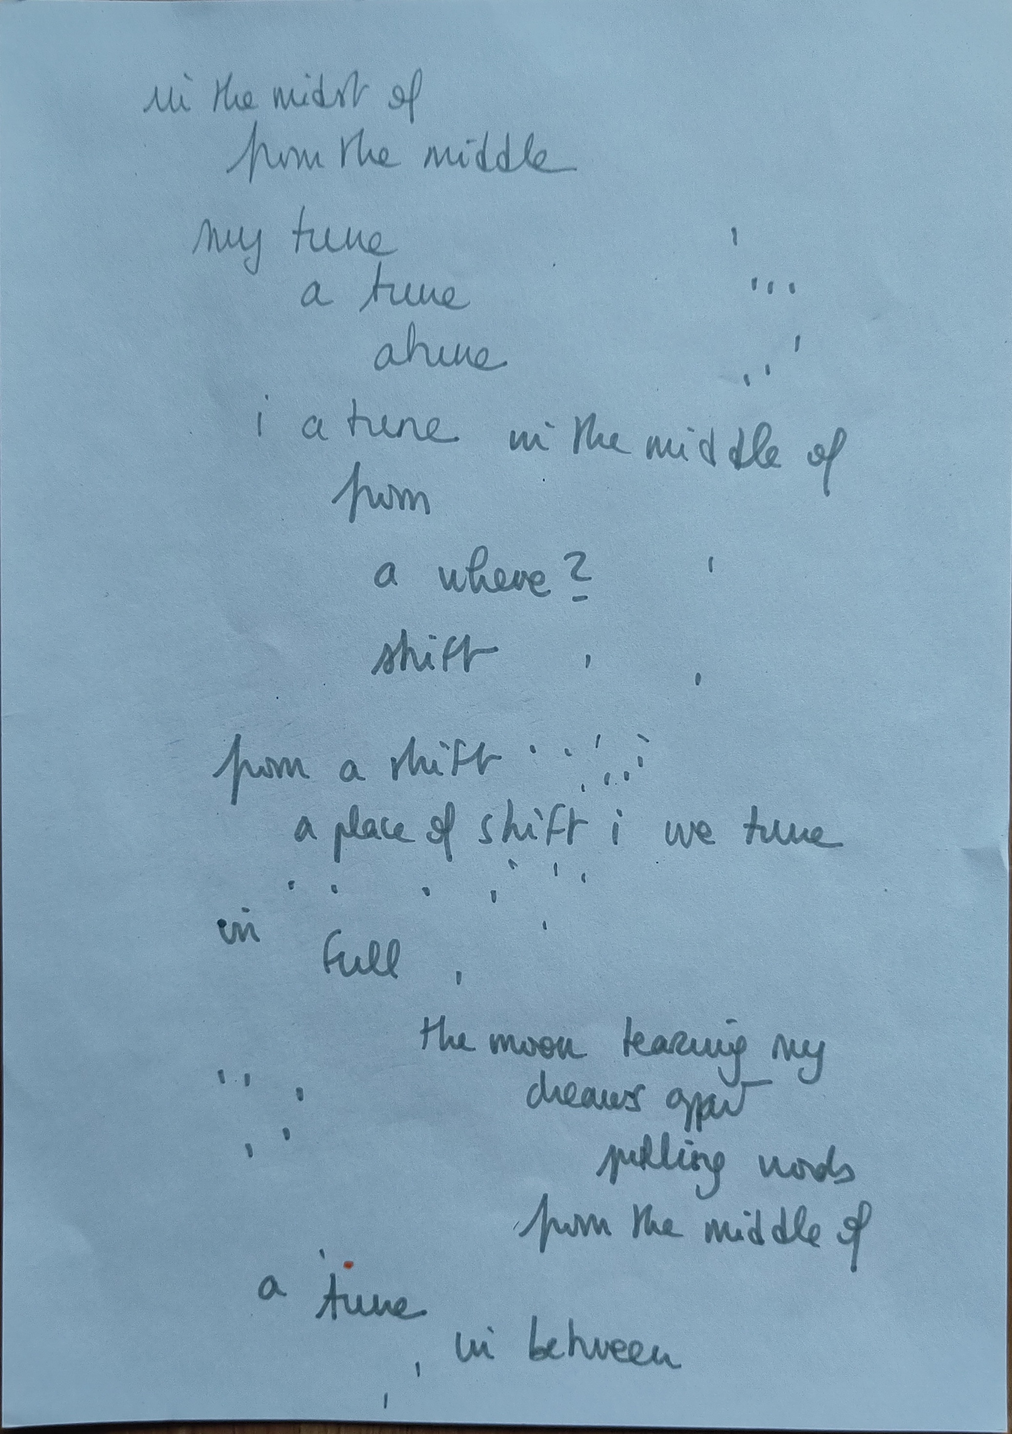 in the midst of
from the middle
my tune
a tune
atune
i a tune in the middle of
from
a where?
shift
from a shift
a place of shift i we tune
in
full
the moon tearing my
dreams appart
pulling words
from the middle of
a tune
in between